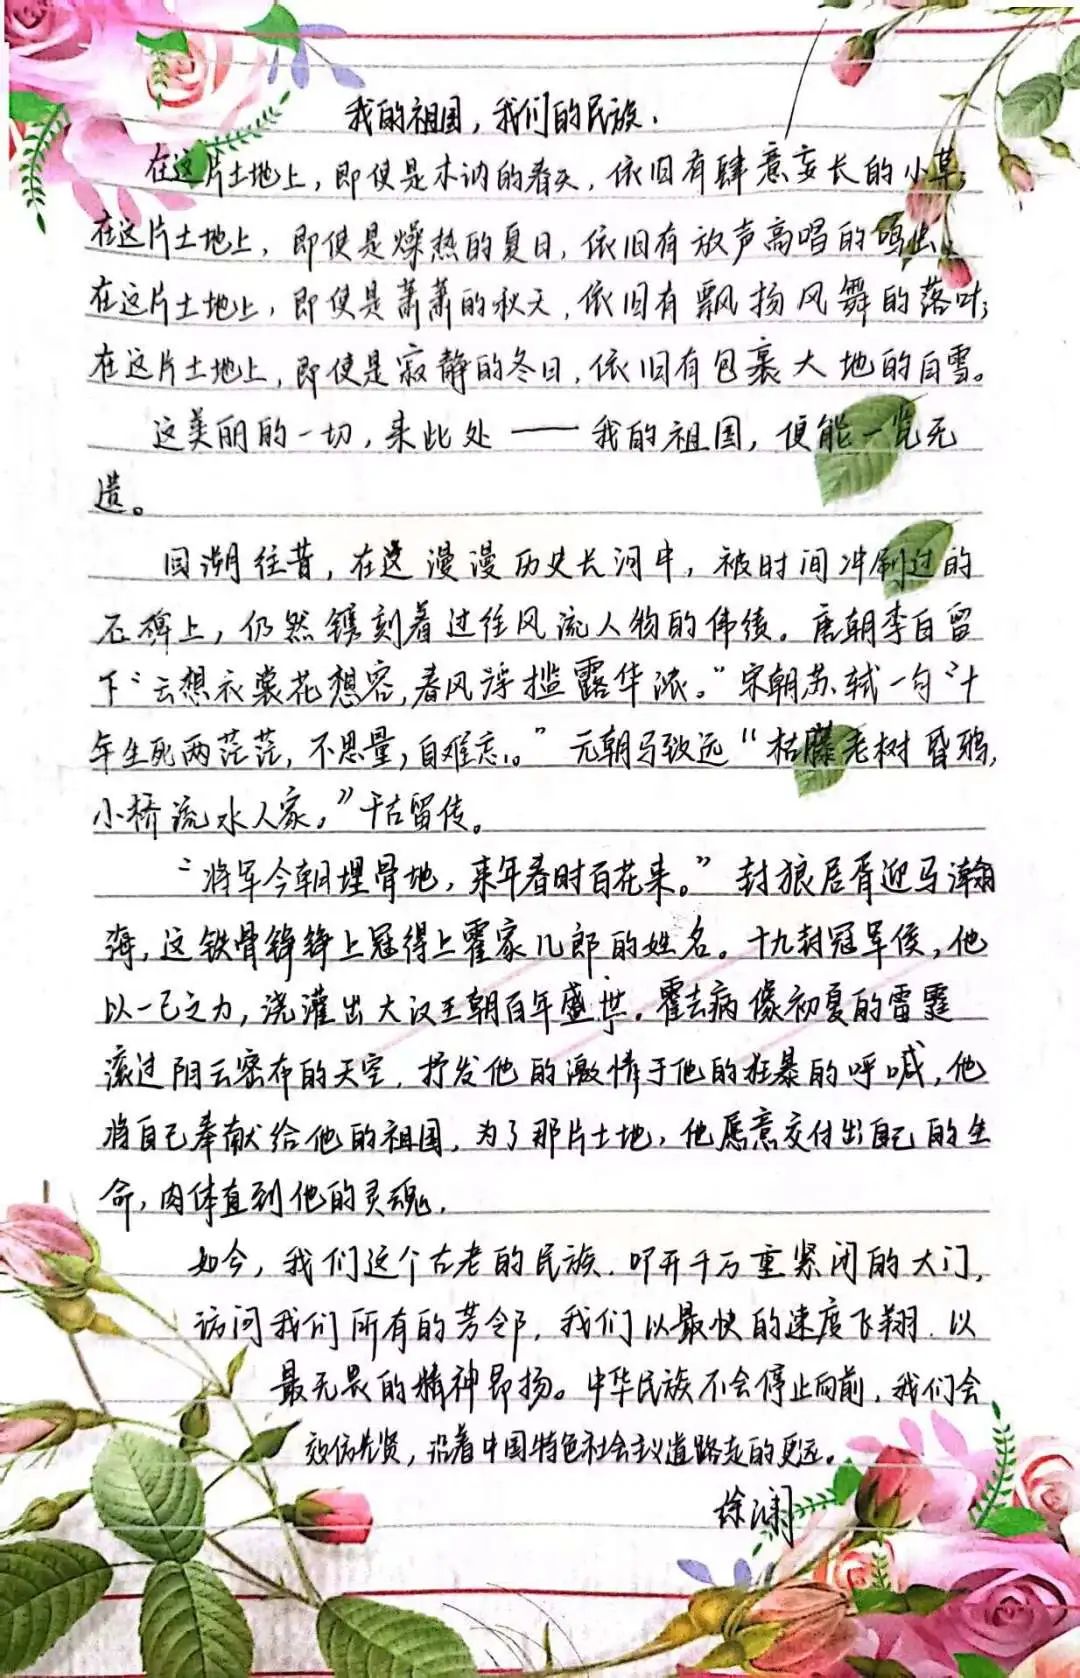 我的祖国，我们的民族.
在这片土地上，即使是木讷的春天，依旧有肆意妄长的小草；
在这片土地上，即使是燥热的夏日，依旧有放声高唱的鸣虫；
在这片土地上，即使是萧萧的秋天，依旧有飘扬风舞的落叶；
在这片土地上，即使是寂静的冬日，依旧有包裹大地的白雪。
这美丽的一切，来此处——我的祖国，便能一览无
遗。
回溯往昔，在这漫漫历史长河中，被时间冲刷过的
石碑上，仍然镌刻着过往风流人物的伟绩。唐朝李白留
下“云想衣裳花想容，春风浮槛露华浓。”宋朝苏轼一句“十
年生死两茫茫，不思量，自难忘。”元朝马致远“枯藤老树昏鸦，
小桥流水人家。”千古留传。
“将军今朝埋骨地，来年春时百花来。”封狼居胥迎马瀚
海，这铁骨铮铮上冠得上霍家儿郎的姓名。十九封冠军侯，他
以一己之力，浇灌出大汉王朝百年盛世。霍去病像初夏的雷霆
滚过阴云密布的天空，抒发他的激情于他的狂暴的呼喊，他
将自己奉献给他的祖国，为了那片土地，他愿意交付出自己的生
命，肉体直到他的灵魂.
如今，我们这个古老的民族，叩开千万重紧闭的大门，
访问我们所有的芳邻，我们以最快的速度飞翔，以
最无畏的精神昂扬。中华民族不会停止向前，我们会
效仿先贤，沿着中国特色社会主义道路走的更远。
徐澜